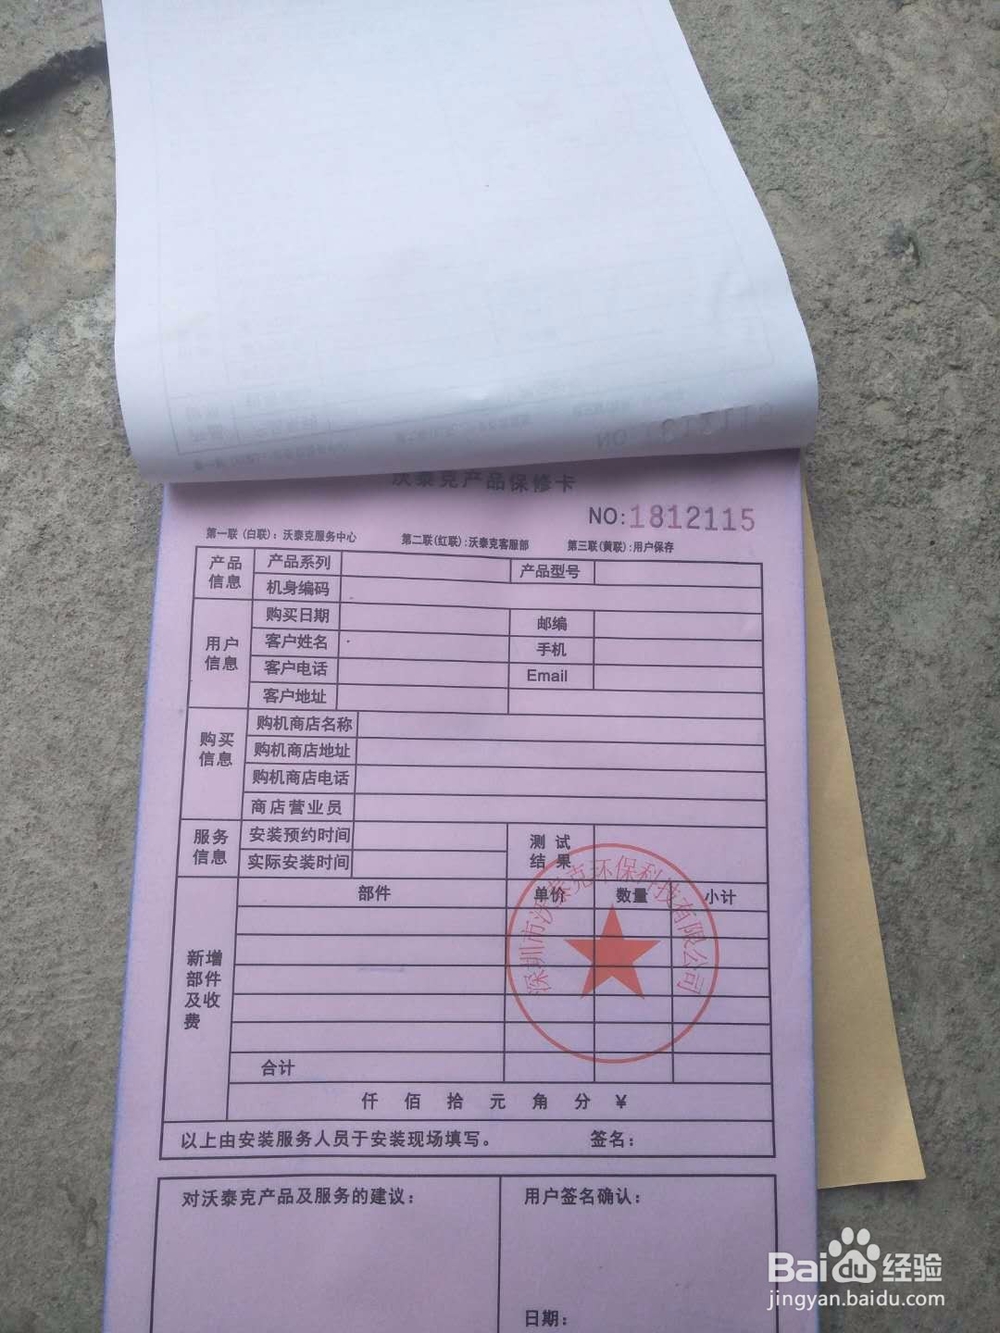 沃泰克产品保修卡
NO:1812115
第一联(白联)：沃泰克服务中心 第二联(红联):沃泰克客服部 第三联(黄联):用户保存
产品信息
产品系列 产品型号
机身编码
用户信息
购买日期 邮编
客户姓名 手机
客户电话 Email
客户地址
购买信息
购机商店名称
购机商店地址
购机商店电话
商店营业员
服务信息
安装预约时间 测试结果
实际安装时间
新增部件及收费
部件 单价 数量 小计
合计
仟 佰 拾 元 角 分 ¥
以上由安装服务人员于安装现场填写。 签名：
深圳市沃泰克环保科技有限公司
对沃泰克产品及服务的建议： 用户签名确认：
日期：
Baidu经验
jingyan.baidu.com